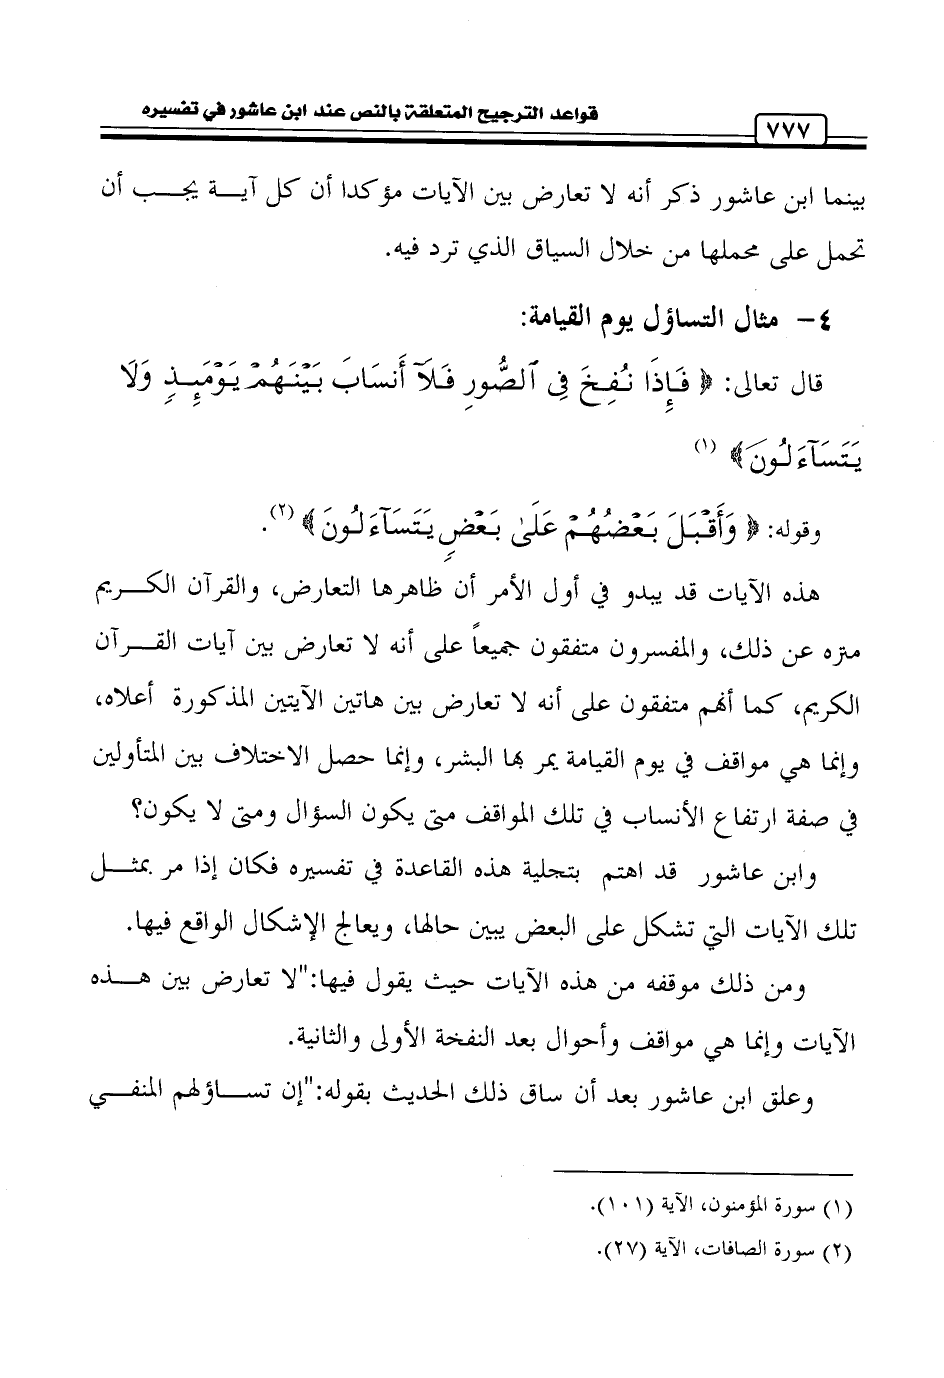 قواعد الترجيح المتعلقة بالنص عند ابن عاشور في تفسيره
٧٧٧
بينما ابن عاشور ذكر أنه لا تعارض بين الآيات مؤكدا أن كل آيــة يجـــب أن
تحمل على محملها من خلال السياق الذي ترد فيه.
٤- مثال التساؤل يوم القيامة:
قال تعالى: ﴿ فَإِذَا نُفِخَ فِى ٱلصُّورِ فَلَآ أَنسَابَ بَيْنَهُمْ يَوْمَئِذٍ وَلَا
يَتَسَآءَلُونَ﴾ (١)
وقوله: ﴿ وَأَقْبَلَ بَعْضُهُمْ عَلَىٰ بَعْضٍ يَتَسَآءَلُونَ﴾ (٢).
هذه الآيات قد يبدو في أول الأمر أن ظاهرها التعارض، والقرآن الكـــريم
منزه عن ذلك، والمفسرون متفقون جميعاً على أنه لا تعارض بين آيات القـــرآن
الكريم، كما أنهم متفقون على أنه لا تعارض بين هاتين الآيتين المذكورة أعلاه،
وإنما هي مواقف في يوم القيامة يمر بها البشر، وإنما حصل الاختلاف بين المتأولين
في صفة ارتفاع الأنساب في تلك المواقف متى يكون السؤال ومتى لا يكون؟
وابن عاشور قد اهتم بتجلية هذه القاعدة في تفسيره فكان إذا مر بمثـــل
تلك الآيات التي تشكل على البعض يبين حالها، ويعالج الإشكال الواقع فيها.
ومن ذلك موقفه من هذه الآيات حيث يقول فيها:"لا تعارض بين هـــذه
الآيات وإنما هي مواقف وأحوال بعد النفخة الأولى والثانية.
وعلق ابن عاشور بعد أن ساق ذلك الحديث بقوله:"إن تســـاؤلهم المنفـــي
(١) سورة المؤمنون، الآية (١٠١).
(٢) سورة الصافات، الآية (٢٧).